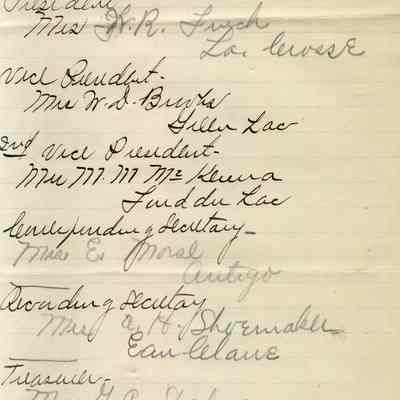 President
Mrs W. R. Finch
La Crosse
Vice President-
Mrs W. D. Brooks
Green Lac
2nd Vice President-
Mrs M M McKenna
Fond du Lac
Corresponding Secretary-
Miss E. Morse
Antigo
Recording Secretary
Mrs A. H. Shoemaker
Eau Claire
Treasurer-